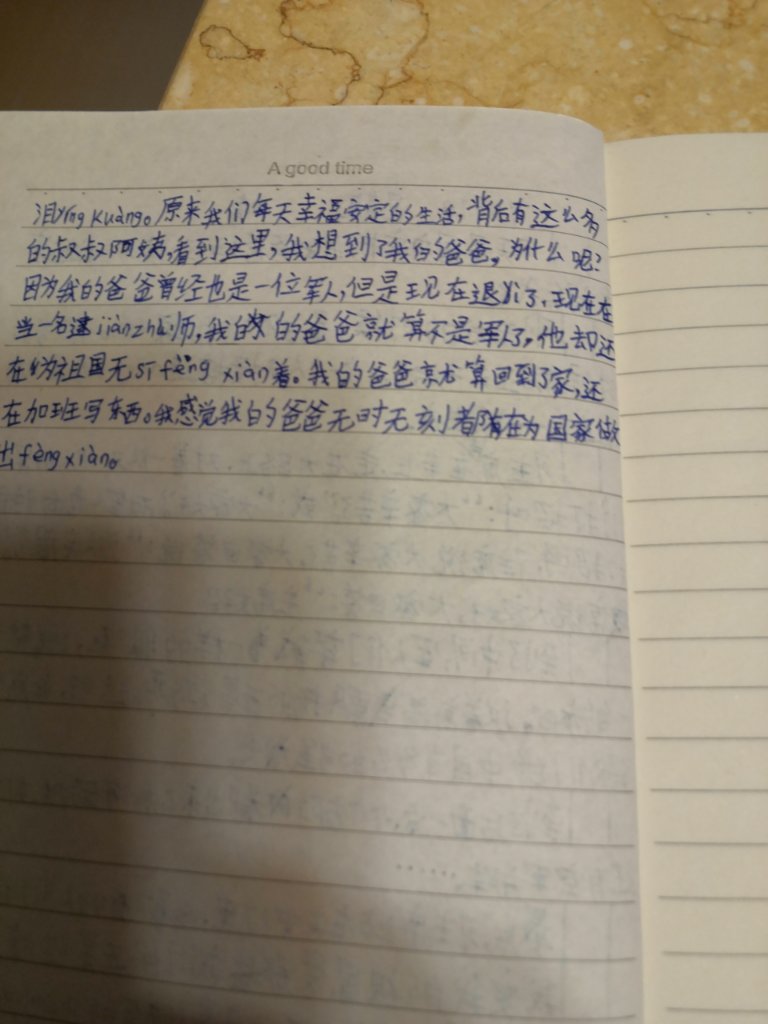 A good time
泪yíng kuàng。原来我们每天幸福安定的生活，背后有这么多
的叔叔阿姨，看到这里，我想到了我的爸爸。为什么呢？
因为我的爸爸曾经也是一位军人，但是现在退yì了，现在在
当一名建jiànzhù师，我的爸爸就算不是军人了，他却还
在为祖国无sī fèng xiàn着。我的爸爸就算回到了家，还
在加班写东西。我感觉我的爸爸无时无刻都在为国家做
出fèng xiàn。